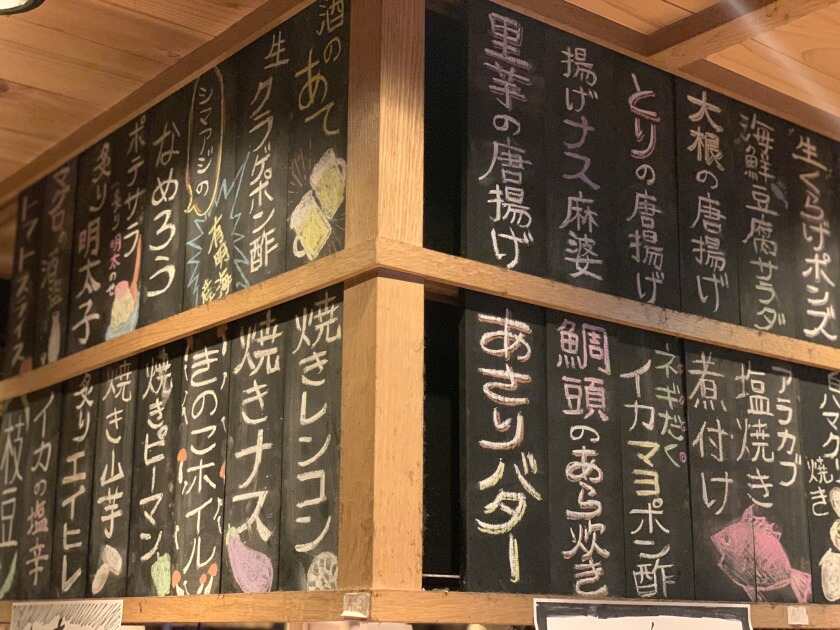 生くらげポンズ
海鮮豆腐サラダ
大根の唐揚げ
とりの唐揚げ
揚げナス麻婆
里芋の唐揚げ
焼き
アラカブ
塩焼き
煮付け
ネギだく
イカマヨポン酢
鯛頭のあら炊き
あさりバター
酒のあて
生クラゲポン酢
シマアジの
なめろう
ポテサラ
炙り明太子
トマトスライス
焼きレンコン
焼きナス
きのこホイル
焼きピーマン
焼き山芋
炙りエイヒレ
イカの塩辛
枝豆